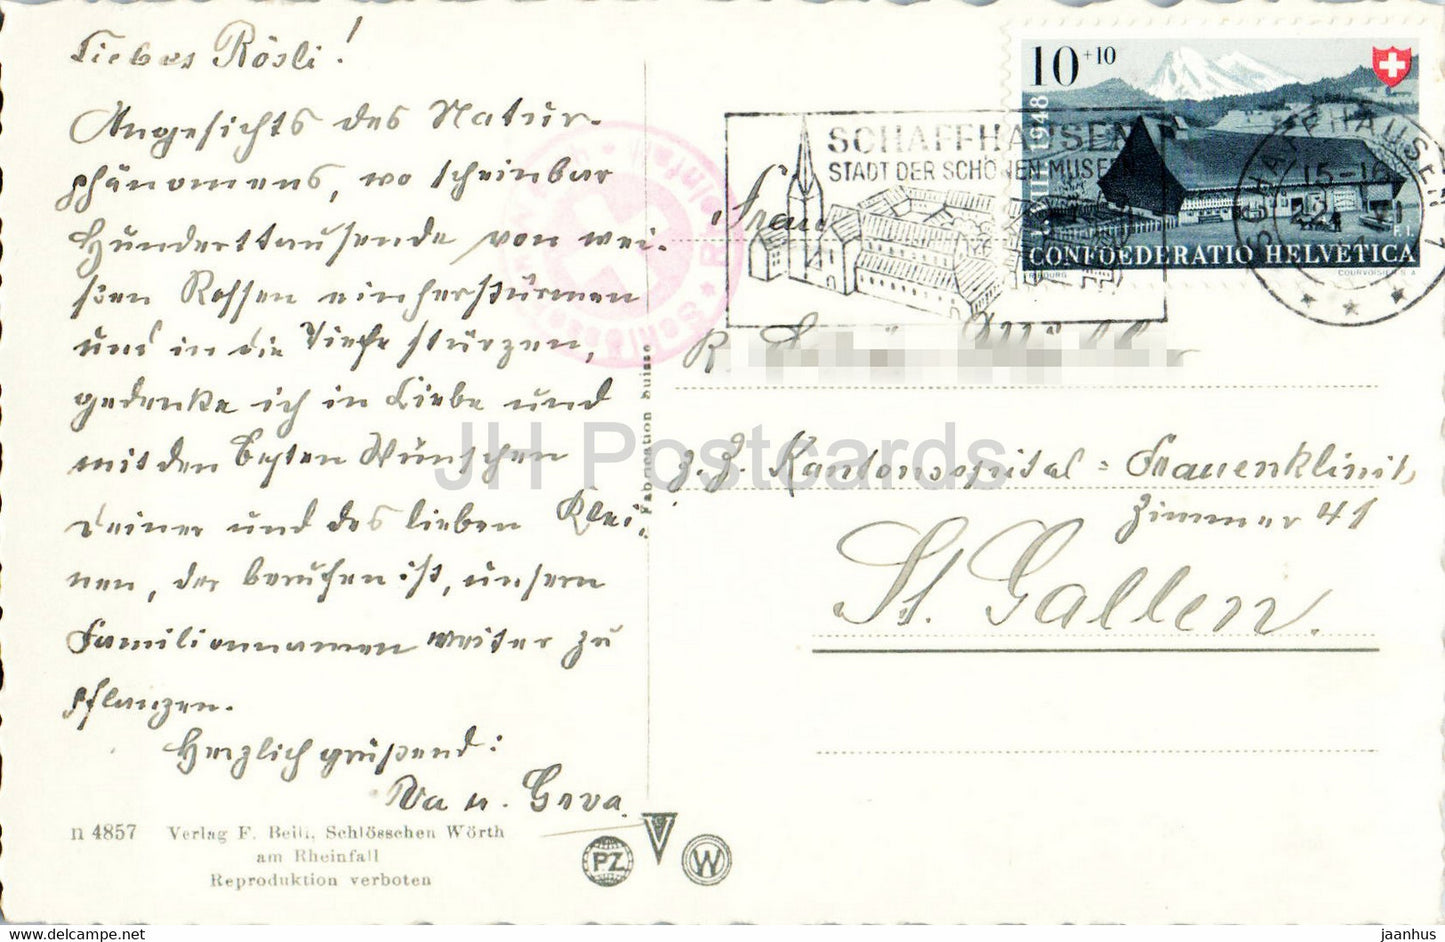 Liebes Rösli!
Angesichts des Natur-
phänomens, wo scheinbar
Hunderttausende von wei-
ßen Rossen einherstürmen
und in die Tiefe stürzen,
gedenke ich in Liebe und
mit den besten Wünschen
Deiner und des lieben Klei-
nen, der berufen ist, unsern
Familiennamen weiter zu
pflanzen.
Herzlich grüßend:
n 4857 Verlag F. Beili, Schlösschen Wörth
am Rheinfall
Reproduktion verboten
PZ
W
Fabrication Suisse
SCHAFFHAUSEN
STADT DER SCHÖNEN MUSEEN
10+10
1948
CONFOEDERATIO HELVETICA
COURVOISIER S.A.
SCHAFFHAUSEN 1
15-16
Frau
z. Z. Kantonsspital = Frauenklinik
Zimmer 41
St. Gallen.
JH Postcards
https://www.delcampe.net
jaanhus